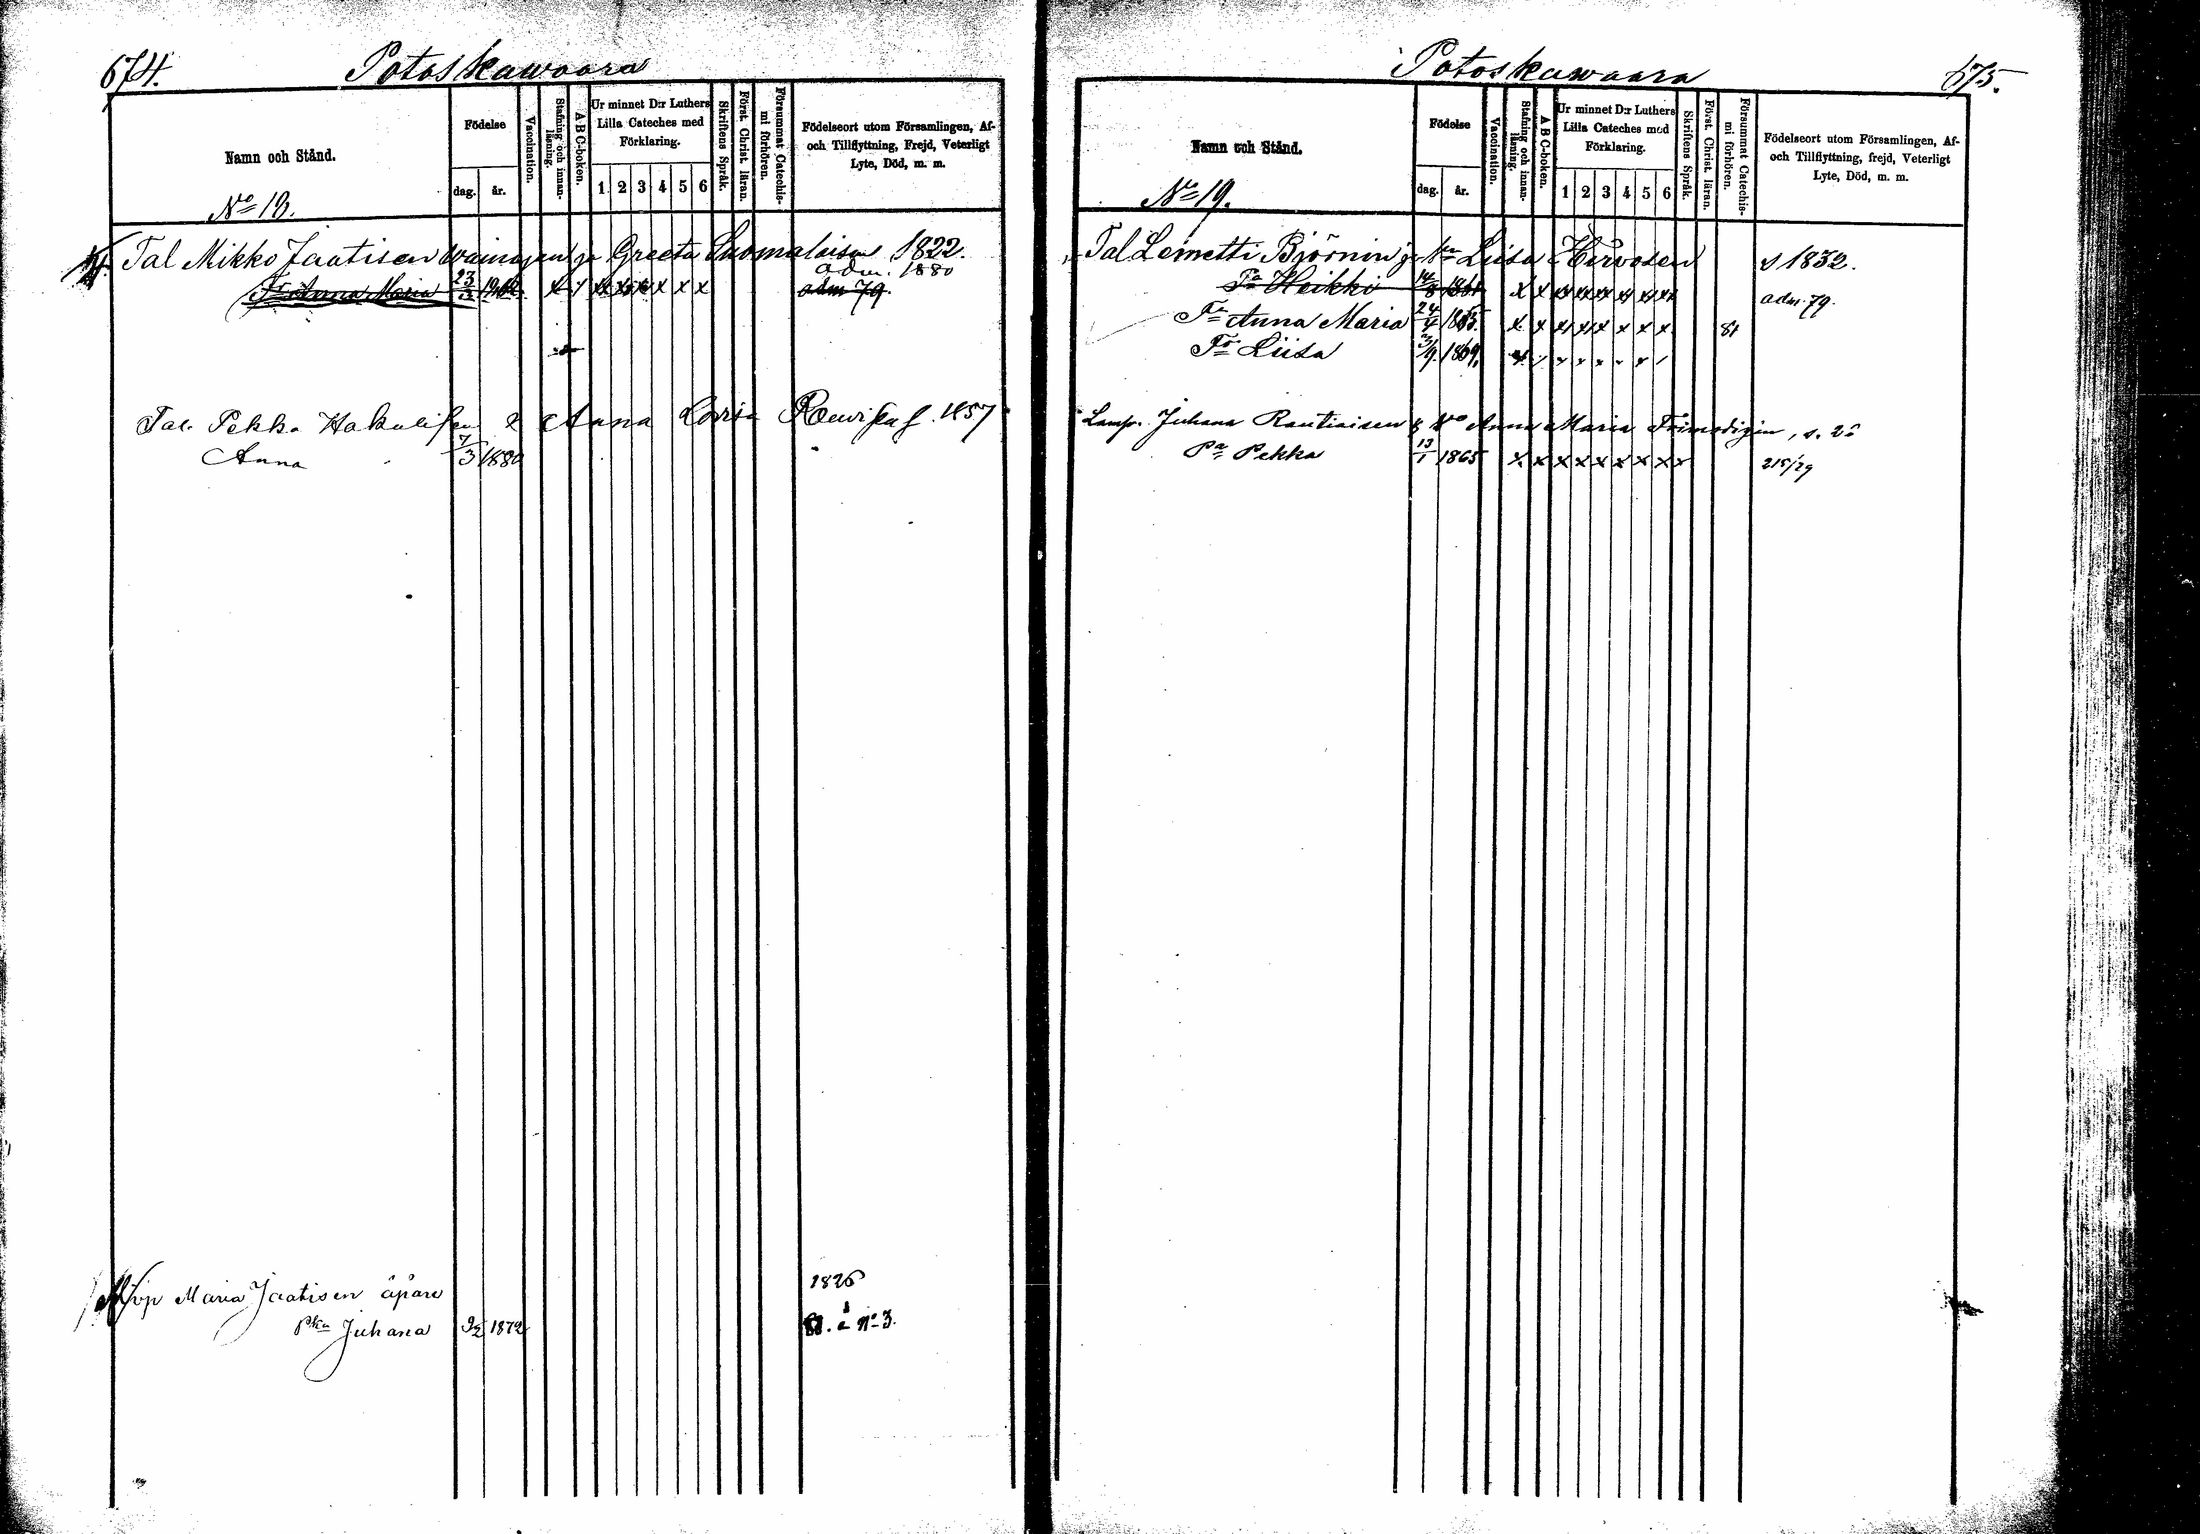 674.
Potoskawaara
Namn och Stånd.
Födelse
dag. år.
Vaccination.
Stafning och innanläsning.
A B C-boken.
Ur minnet D:r Luthers Lilla Cateches med Förklaring.
1 2 3 4 5 6
Skriftens Språk.
Först. Christ. läran.
Försummat Catechismi förhören.
Födelseort utom Församlingen, Af- och Tillflyttning, Frejd, Veterligt Lyte, Död, m. m.
No 18.
Tal Mikko Jaatisen wainajan ja Greeta Suomalaisen 1822.
adm. 1880
Tr Anna Maria 23 x x x x x x x x adm 79.
Tal. Pekka Hakulisen & Anna Lovisa 1857
Anna 7/3 1880
Maria Jaatisen äpare 1826
Juhana 9/2 1872 No 3.
Potoskawaara
675.
Namn och Stånd.
Födelse
dag. år.
Vaccination.
Stafning och innanläsning.
A B C-boken.
Ur minnet D:r Luthers Lilla Cateches med Förklaring.
1 2 3 4 5 6
Skriftens Språk.
Först. Christ. läran.
Försummat Catechismi förhören.
Födelseort utom Församlingen, Af- och Tillflyttning, frejd, Veterligt Lyte, Död, m. m.
No 19.
Tal Lemetti Björnin ja Liisa Hirvosen s 1832.
Pa Heikki 14/8 1861 x x x x x x x x adm. 79.
Tr Anna Maria 24/4 1865. x x x x x x x x 81
Tr Liisa 3/9. 1869.
Lamp. Juhana Rautiaisen & Wo Anna Maria
Pa Pekka 13/1 1865 x x x x x x x x x 215/29